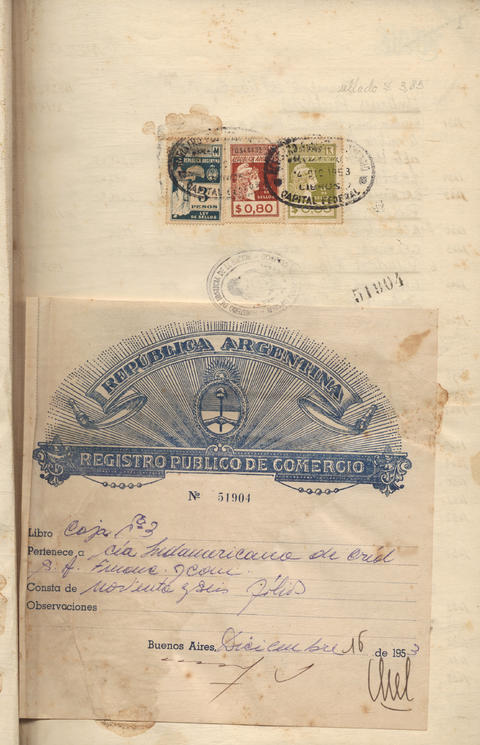 sellado $ 3,85
REPUBLICA ARGENTINA
3
PESOS
LEY DE SELLOS
$0,80
SELLOS
DIC 1953
LIBROS
CAPITAL FEDERAL
51904
REPÚBLICA ARGENTINA
REGISTRO PUBLICO DE COMERCIO
Nº 51904
Libro Caja Nº 3
Pertenece a Cía Sudamericana de Cred
S. A. Financ. y Com.
Consta de Noventa y seis fólios
Observaciones
Buenos Aires, Diciembre 16 de 1953